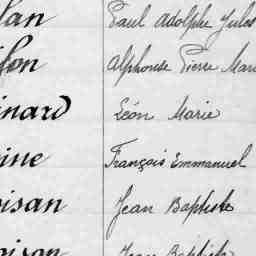 lan Paul Adolphe Jules
lon Alphonse Pierre Mari
nard Léon Marie
ine François Emmanuel
oisan Jean Baptiste
oison Jean Baptiste